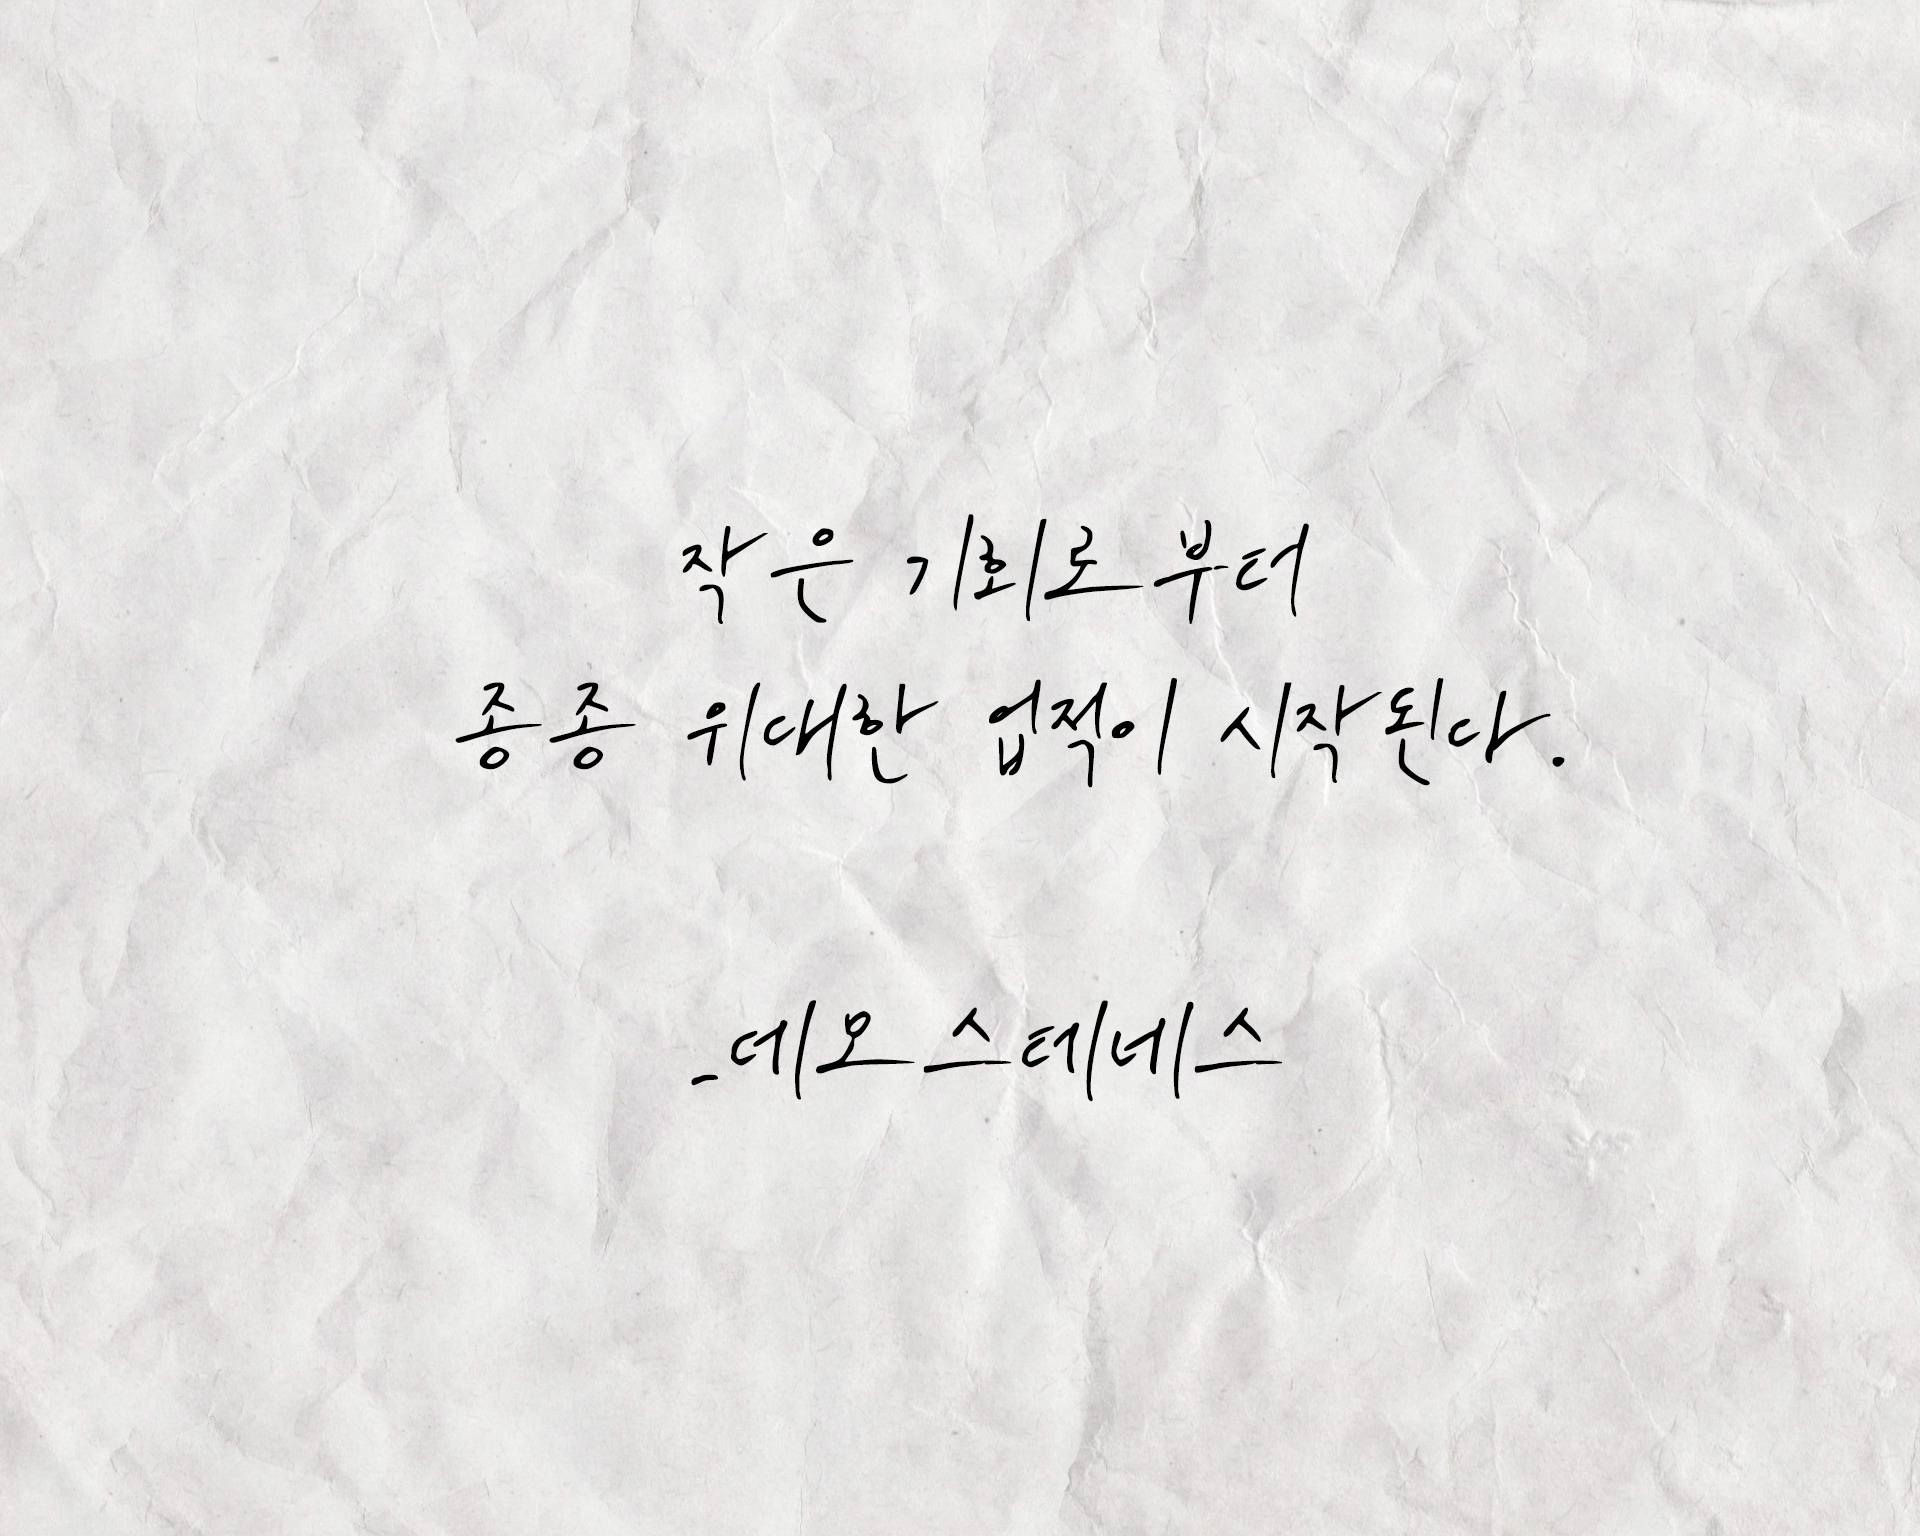 작은 기회로부터
종종 위대한 업적이 시작된다.
_데모스테네스